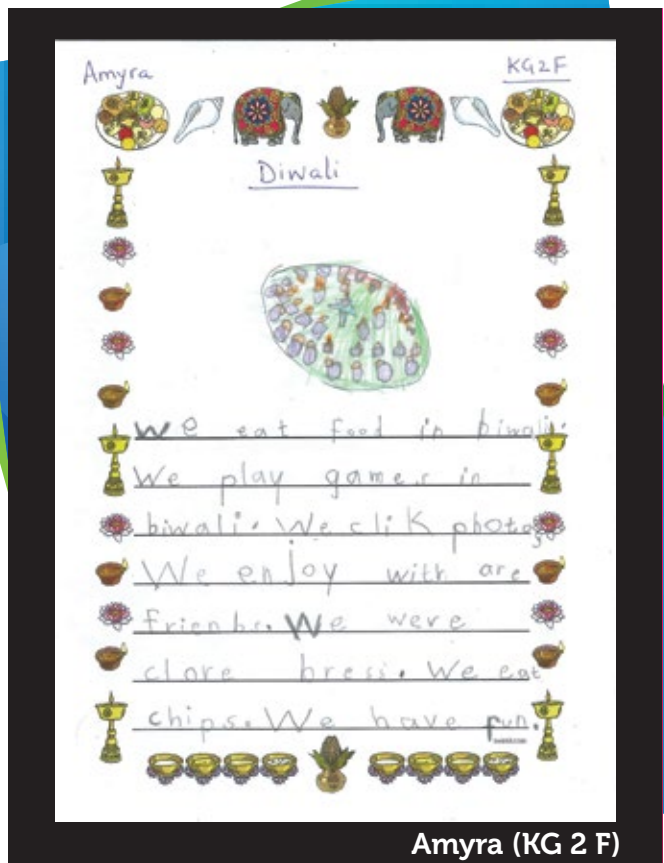 Amyra
KG2F
Diwali
We eat food in biwali.
We play games in
biwali. We clik photos
We enjoy with are
frienbs. We were
clore bress. We eat
chips. We have fun.
Amyra (KG 2 F)